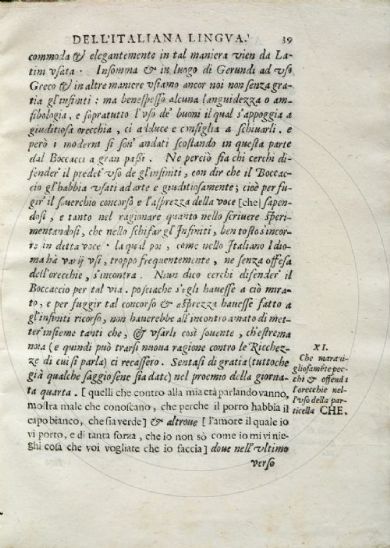 DELL'ITALIANA LINGVA. 39
commoda & elegantemente in tal maniera vien da La-
tini vsata. Insomma & in luogo di Gerundi ad vso
Greco & in altre maniere vsiamo ancor noi non senza gra-
tia gl'infiniti: ma benespesso alcuna languidezza o am-
fibologia, e sopratutto l'vso de' buoni il qual s'appoggia a
giuditiosa orecchia, ci adduce e consiglia a schiuarli. e
però i moderni si son' andati scostando in questa parte
dal Boccacci a gran passi. Ne perciò sia chi cerchi di-
fender' il predet' vso de gl'infiniti, con dir che il Boccac-
cio gl'habbia vsati ad arte e giuditiosamente; cioè per fu-
gir' il souerchio concorso e l'asprezza della voce [che] sapen-
dosi, e tanto nel ragionare quanto nello scriuere speri-
mentandosi, che nello schifar gl'Infiniti, ben tosto s'incor-
re in detta voce. la qual poi, come nello Italiano Idio-
ma hà varij vsi, troppo frequentemente, ne senza offesa
dell'orecchie, s'incontra. Niun dico cerchi difender' il
Boccaccio per tal via. posciache s'egli hauesse a ciò mira-
to, e per fuggir tal concorso & asprezza hauesse fatto a
gl'infiniti ricorso, non hauerebbe all'incontro amato di met-
ter'insieme tanti che, & vsarli così souente, ch'estrema
noia (e quindi può trarsi nuoua ragione contro le Ricchez-
ze di cui si parla) ci recassero. Sentasi di gratia (tuttoche
già qualche saggio se ne sia dato) nel proemio della giorna-
ta quarta. [quelli che contro alla mia età parlando vanno,
mostra male che conoscano, che perche il porro habbia il
capo bianco, che sia verde] & altroue [l'amore il quale io
vi porto, e di tanta forza, che io non sò come io mi vi nie-
ghi cosa che voi vogliate che io faccia] doue nell'vltimo
verso
XI.
Che maraui-
gliosamēte pec-
chi & offenda
l'orecchie nel-
l'vso della par-
ticella CHE.